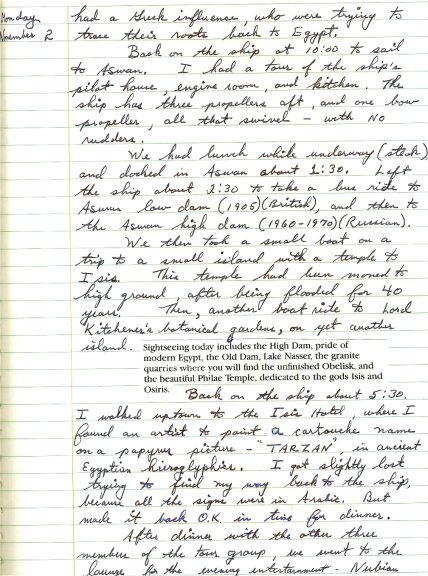 Monday
November 2
had a Greek influence, who were trying to
trace their roots back to Egypt.
Back on the ship at 10:00 to sail
to Aswan. I had a tour of the ship's
pilot house, engine room, and kitchen. The
ship has three propellers aft, and one bow
propeller, all that swivel - with NO
rudders.
We had lunch while underway (steak)
and docked in Aswan about 1:30. Left
the ship about 2:30 to take a bus ride to
Aswan low dam (1905)(British), and then to
the Aswan high dam (1960-1970)(Russian).
We then took a small boat on a
trip to a small island with a temple to
Isis. This temple had been moved to
high ground, after being flooded for 40
years. Then, another boat ride to Lord
Kitchener's botanical gardens, on yet another
island.
Sightseeing today includes the High Dam, pride of
modern Egypt, the Old Dam, Lake Nasser, the granite
quarries where you will find the unfinished Obelisk, and
the beautiful Philae Temple, dedicated to the gods Isis and
Osiris.
Back on the ship about 5:30.
I walked uptown to the Isis Hotel, where I
found an artist to paint a cartouche name
on a papyrus picture - "TARZAN" in ancient
Egyptian hieroglyphics. I got slightly lost
trying to find my way back to the ship,
because all the signs were in Arabic. But
made it back O.K. in time for dinner.
After dinner with the other three
members of the tour group, we went to the
lounge for the evening entertainment - Nubian